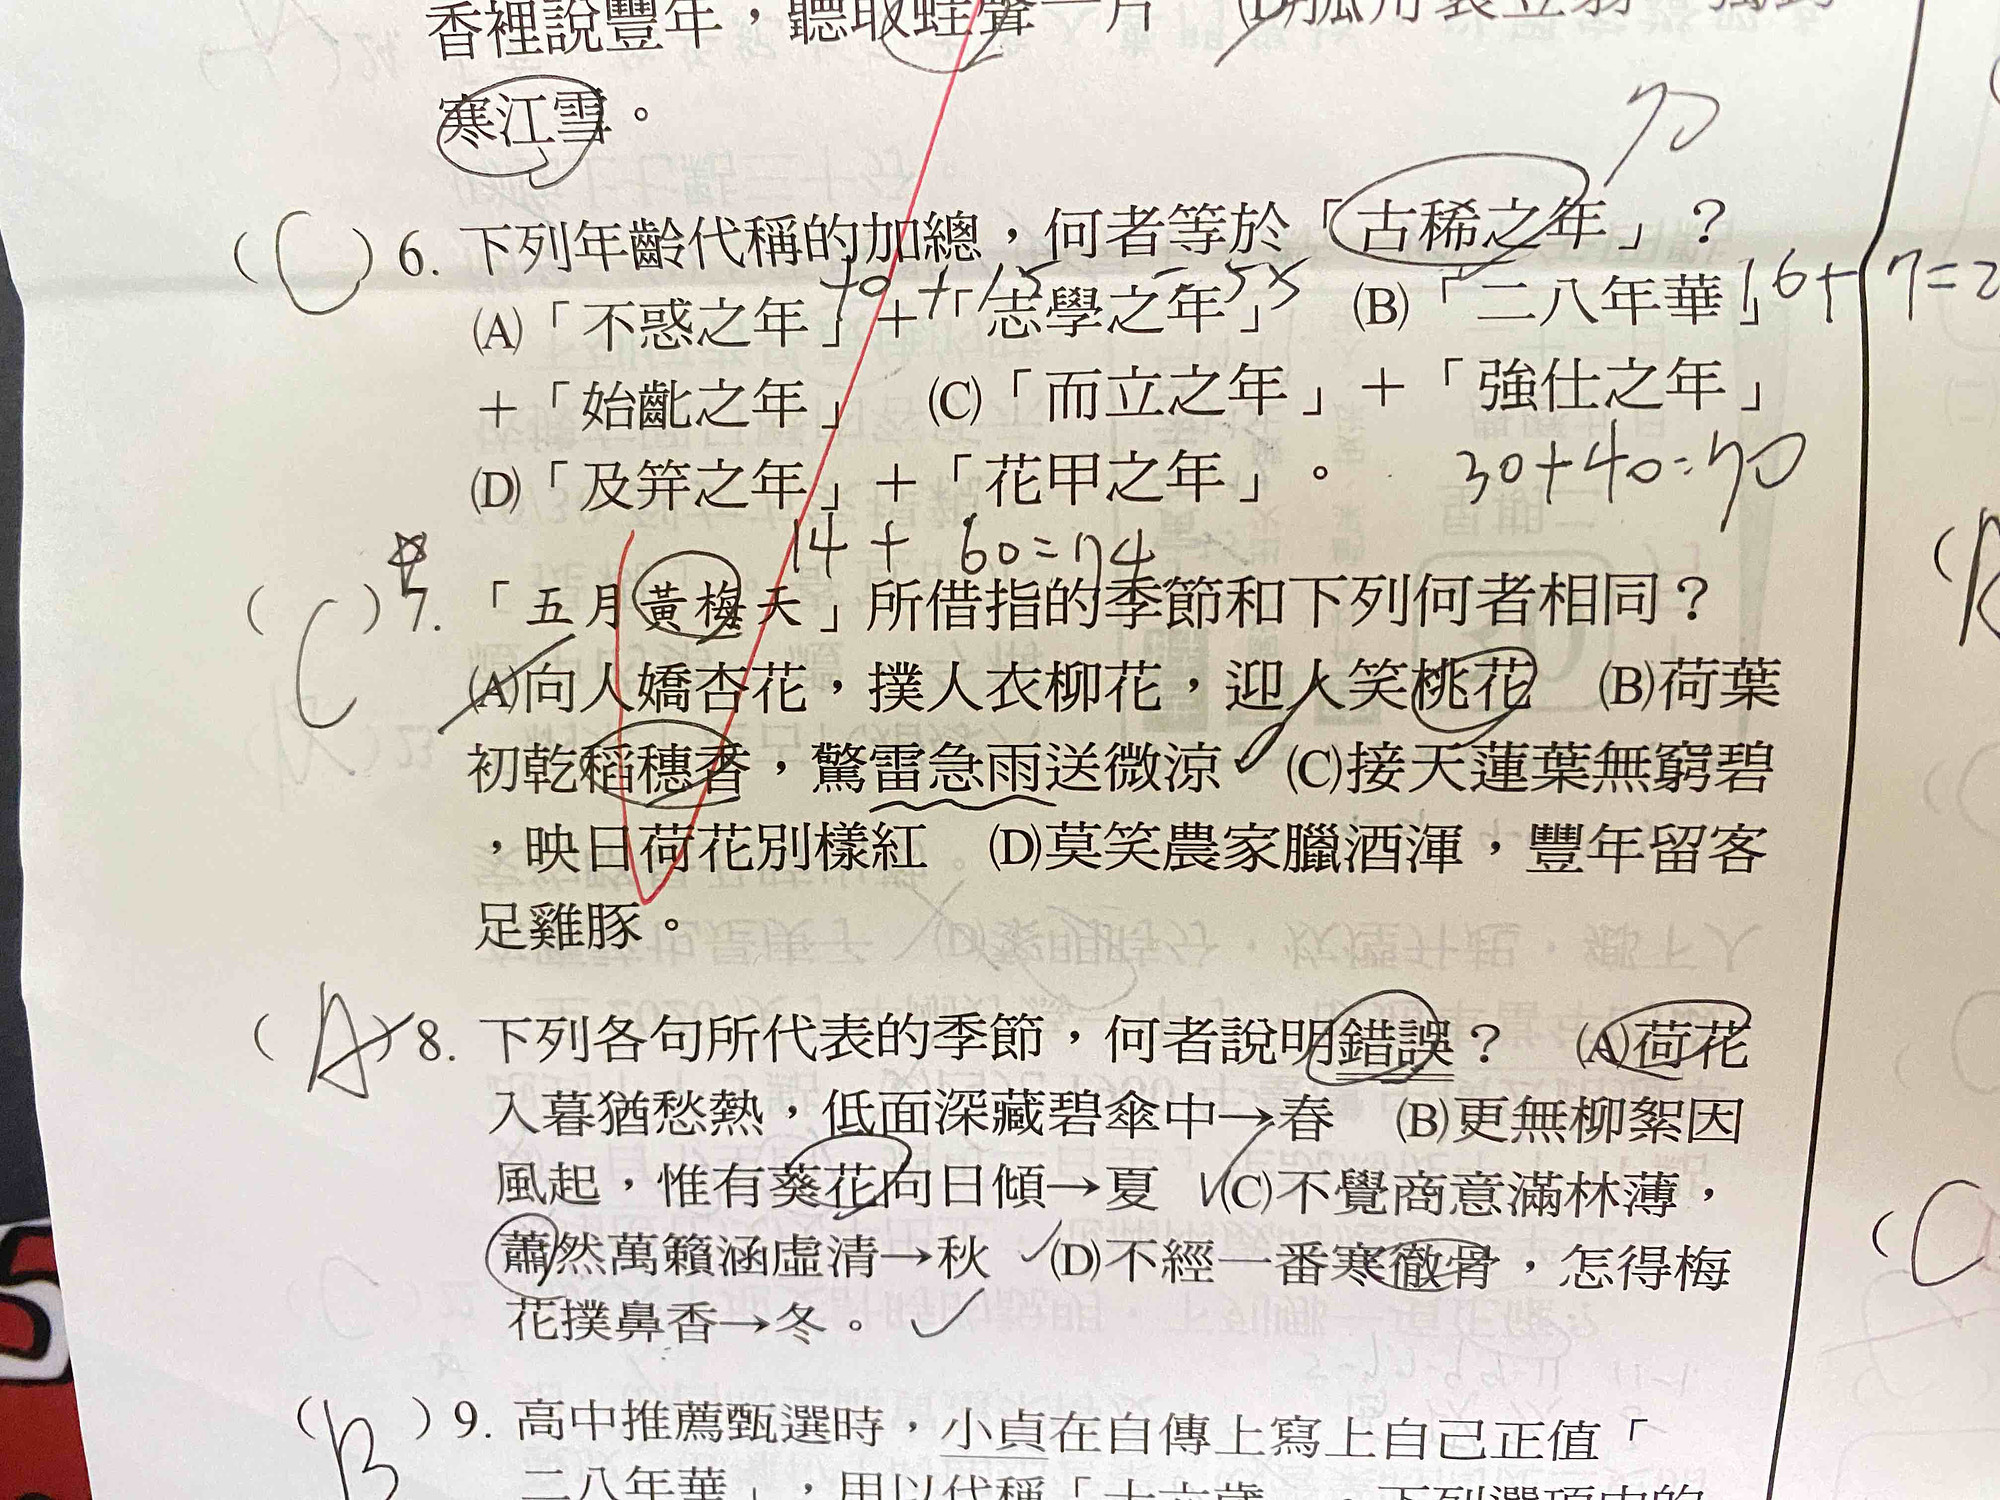 香裡說豐年，聽取蛙聲一片
寒江雪。
70
(C)6. 下列年齡代稱的加總，何者等於「古稀之年」？
40+15=55 16+7=2
(A)「不惑之年」+「志學之年」 (B)「二八年華」
+「始齔之年」 (C)「而立之年」+「強仕之年」
30+40=70
(D)「及笄之年」+「花甲之年」。
14+60=74
(C)7. 「五月黃梅天」所借指的季節和下列何者相同？
(A)向人嬌杏花，撲人衣柳花，迎人笑桃花 (B)荷葉
初乾稻穗香，驚雷急雨送微涼 (C)接天蓮葉無窮碧
，映日荷花別樣紅 (D)莫笑農家臘酒渾，豐年留客
足雞豚。
(A)8. 下列各句所代表的季節，何者說明錯誤？ (A)荷花
入暮猶愁熱，低面深藏碧傘中→春 (B)更無柳絮因
風起，惟有葵花向日傾→夏 (C)不覺商意滿林薄，
蕭然萬籟涵虛清→秋 (D)不經一番寒徹骨，怎得梅
花撲鼻香→冬。
(B)9. 高中推薦甄選時，小貞在自傳上寫上自己正值「
二八年華」，用以代稱「十六歲」。下列選項中的
(C
5